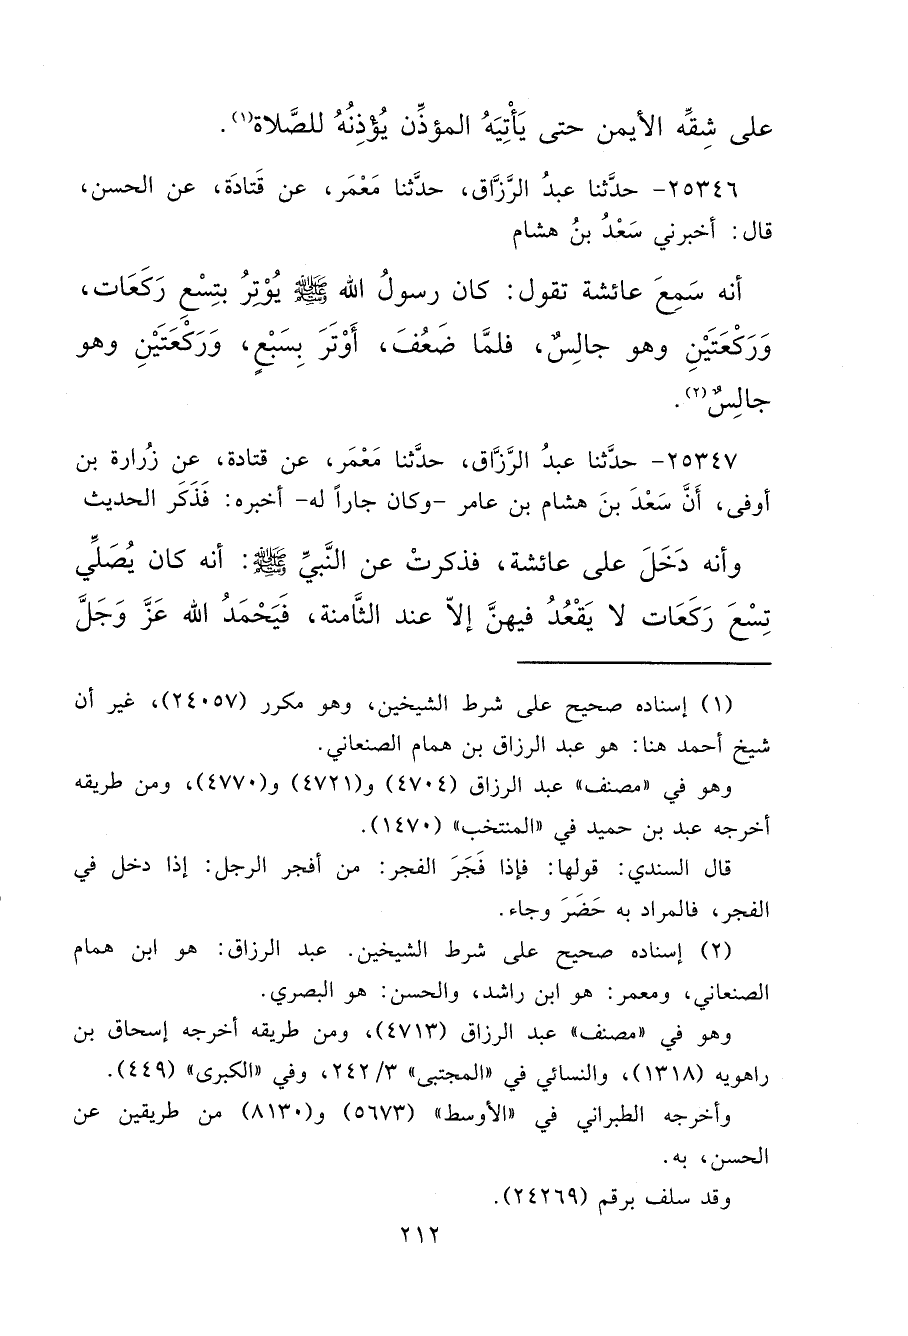 على شِقِّه الأيمن حتى يَأْتِيَهُ المؤذِّن يُؤْذِنُهُ للصَّلاة(١).
٢٥٣٤٦- حدَّثنا عبدُ الرَّزَّاق، حدَّثنا مَعْمَر، عن قَتادَة، عن الحسن،
قال: أخبرني سَعْدُ بنُ هشام
أنه سَمِعَ عائشة تقول: كان رسولُ الله ﷺ يُوْتِرُ بتِسْعِ رَكَعَات،
وَرَكْعَتَيْنِ وهو جالِسٌ، فلمَّا ضَعُفَ، أَوْتَرَ بِسَبْعٍ، وَرَكْعَتَيْنِ وهو
جالِسٌ(٢).
٢٥٣٤٧- حدَّثنا عبدُ الرَّزَّاق، حدَّثنا مَعْمَر، عن قتادة، عن زُرارة بن
أوفى، أَنَّ سَعْدَ بنَ هشام بن عامر -وكان جاراً له- أخبره: فَذَكَر الحديث
وأنه دَخَلَ على عائشة، فذكرتْ عن النَّبيِّ ﷺ: أنه كان يُصَلِّي
تِسْعَ رَكَعَات لا يَقْعُدُ فيهنَّ إلاّ عند الثَّامنة، فَيَحْمَدُ الله عَزَّ وَجَلَّ
(١) إسناده صحيح على شرط الشيخين، وهو مكرر (٢٤٠٥٧)، غير أن
شيخ أحمد هنا: هو عبد الرزاق بن همام الصنعاني.
وهو في «مصنف» عبد الرزاق (٤٧٠٤) و(٤٧٢١) و(٤٧٧٠)، ومن طريقه
أخرجه عبد بن حميد في «المنتخب» (١٤٧٠).
قال السندي: قولها: فإذا فَجَرَ الفجر: من أفجر الرجل: إذا دخل في
الفجر، فالمراد به حَضَرَ وجاء.
(٢) إسناده صحيح على شرط الشيخين. عبد الرزاق: هو ابن همام
الصنعاني، ومعمر: هو ابن راشد، والحسن: هو البصري.
وهو في «مصنف» عبد الرزاق (٤٧١٣)، ومن طريقه أخرجه إسحاق بن
راهويه (١٣١٨)، والنسائي في «المجتبى» ٢٤٢/٣، وفي «الكبرى» (٤٤٩).
وأخرجه الطبراني في «الأوسط» (٥٦٧٣) و(٨١٣٠) من طريقين عن
الحسن، به.
وقد سلف برقم (٢٤٢٦٩).
٢١٢